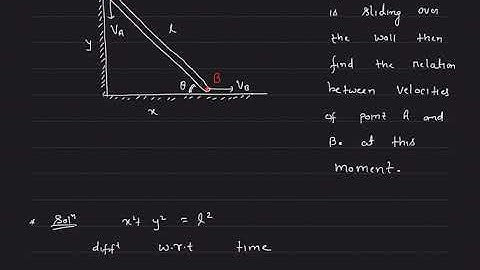 V_A
l
y
B
θ
V_B
x
is sliding over
the wall then
find the relation
between velocities
of point A and
B. at this
moment.
* Solⁿ x²+ y² = l²
diffᵗ w.r.t time